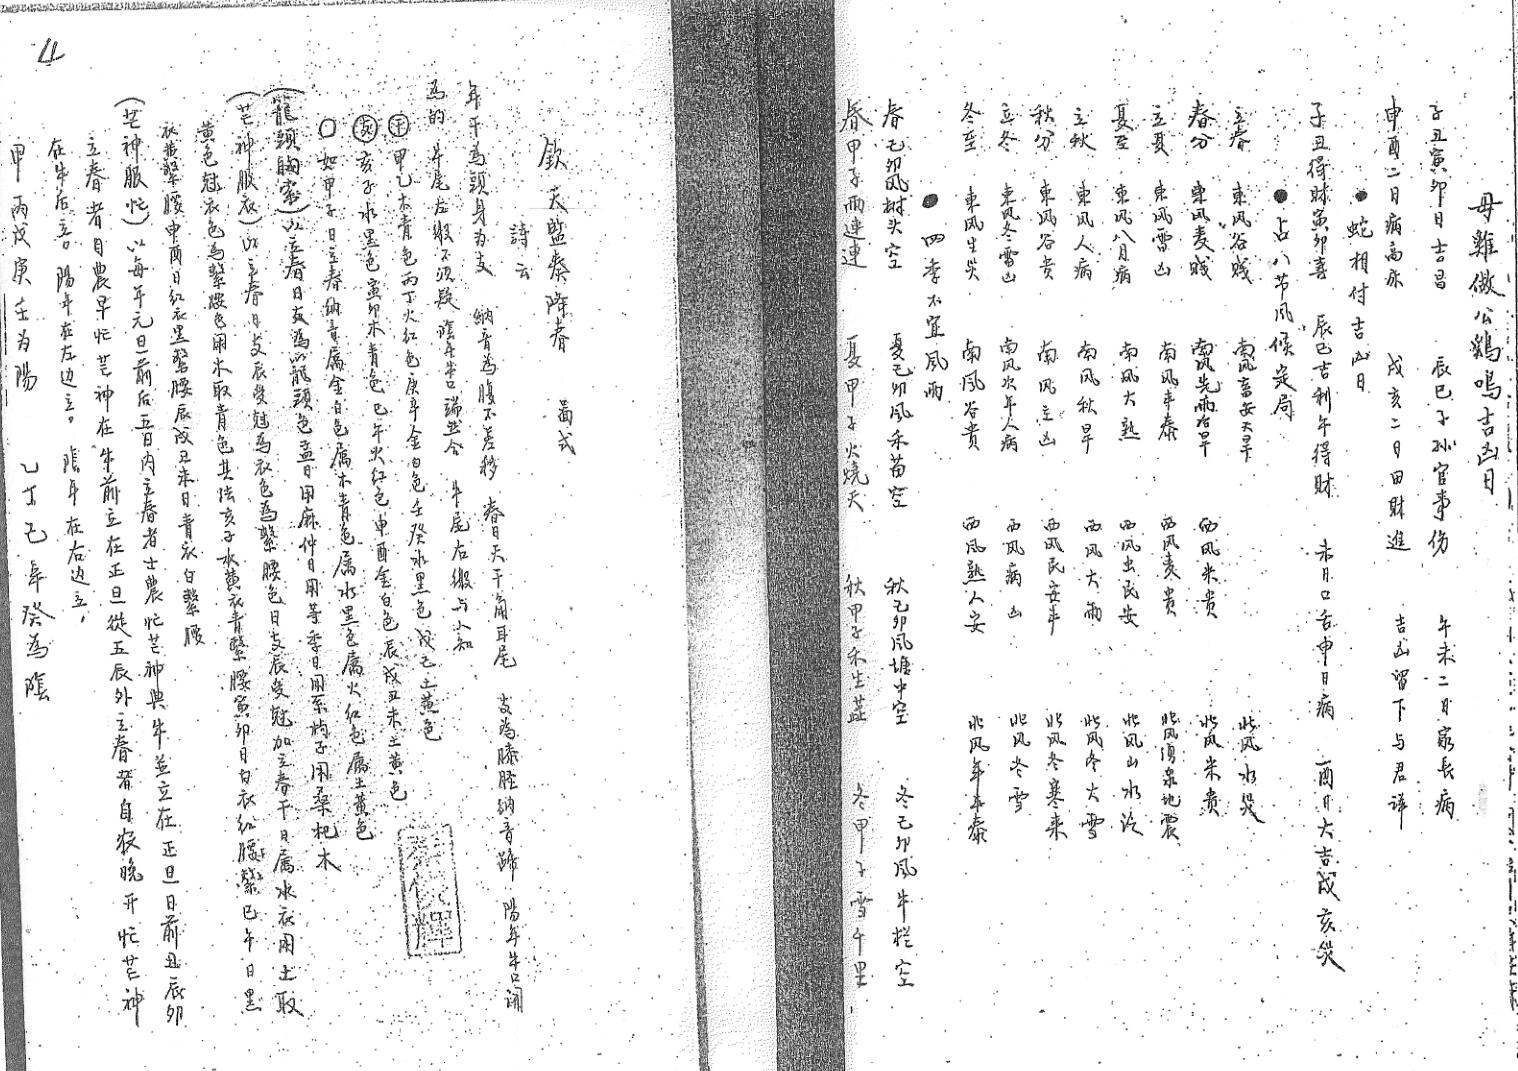 母雞做公鷄鳴吉凶日
子丑寅卯日吉昌 辰巳子孙官事伤 午未二日家長病
申酉二日病高床 戌亥二日田財進 吉凶留下与君详
●蛇相付吉凶日
子丑得財寅卯喜 辰巳吉利午得財 未日口舌申日病 酉日大吉戌亥災
●占八节风候定局
立春 東风谷贱 南风畜安大旱 北风水災
春分 東风麦贱 南风先雨后旱 西风米贵 北风米贵
立夏 東风雷凶 南风丰泰 西风麦贵 北风湧泉地震
夏至 東风八月病 南风大熟 西风虫民安 北风山水泛
立秋 東风人病 南风秋旱 西风大雨 北风冬大雪
秋分 東风谷贵 南风主凶 西风民安丰 北风冬寒来
立冬 東风冬雪凶 南风次年人病 西风病凶 北风冬雪
冬至 東风生災 南风谷贵 西风熟人安 北风年丰泰
●四季不宜风雨
春己卯风树头空 夏己卯风禾苗空 秋己卯风塘中空 冬己卯风牛栏空
春甲子雨連連 夏甲子火燒天 秋甲子禾生 冬甲子雪千里
4
欽天監奏降春 苗式
詩云
年干為頭身为支 納音為腹不差移 春日天干角耳尾 支為膝脛纳音蹄 陽年牛口開
為的 牛尾左缴不须疑 陰年牛口端然合 牛尾右缴与人知
干 甲乙木青色丙丁火红色庚辛金白色壬癸水黑色戊己土黄色
支 亥子水黑色寅卯木青色巳午火红色申酉金白色辰戌丑未土黄色
○如甲子日立春纳音属金白色属木青色属水黑色属火红色属土黄色
(籠頭 )以立春日支為籠頭色孟日用麻仲日用苧季日用系 子用桑柘木
(芒神服衣)以立春日支辰受尅為衣色為繫腰色日支辰受尅加立春干日属水衣用土取
黄色尅衣色為繫腰色用木取青色其法亥子水黄衣青繫腰寅卯日白衣红腰繫巳午日黑
衣黄繫腰申酉日红衣黑繫腰辰戌丑未日青衣白繫腰
(芒神服忙)以每年元旦前后五日内立春者士農忙芒神與牛並立在正旦日前丑辰卯
立春者自農早忙芒神在牛前立在正旦從五辰外立春者自农晚开忙芒神
在牛后立。陽年在左边立。陰年在右边立，
甲丙戊庚壬为陽 乙丁己辛癸為陰